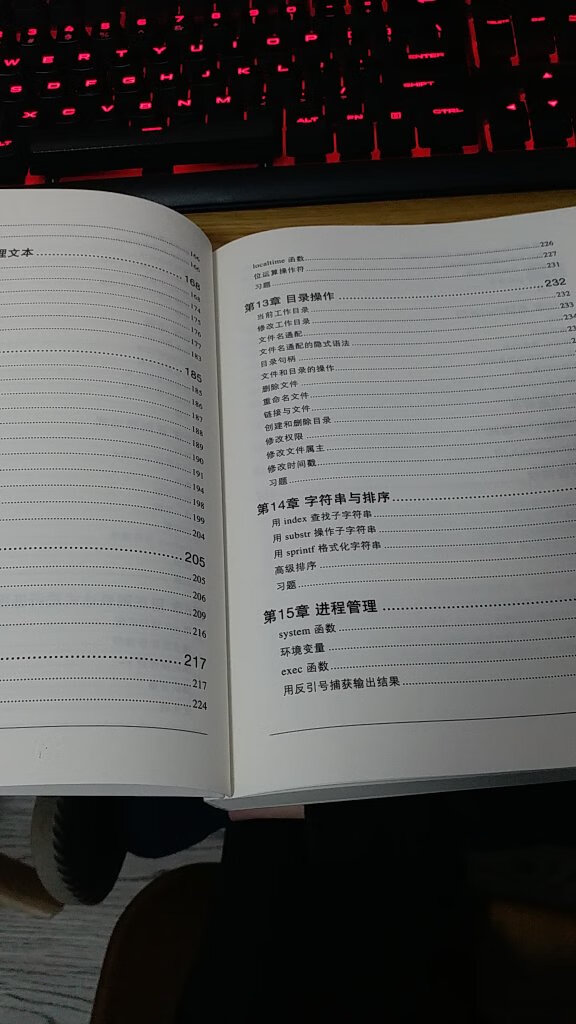 7 8 9 0
W E R T Y U I O P
S D F G H J K L ENTER
X C V B N M SHIFT
ALT ALT FN CTRL
理文本
166
166
168
168
174
175
176
177
183
185
185
186
187
188
189
190
191
194
198
199
204
205
205
206
209
216
217
217
224
localtime 函数 226
位运算操作符 227
习题 231
第13章 目录操作 232
当前工作目录 232
修改工作目录 233
文件名通配 234
文件名通配的隐式语法
目录句柄
文件和目录的操作
删除文件
重命名文件
链接与文件
创建和删除目录
修改权限
修改文件属主
修改时间戳
习题
第14章 字符串与排序
用 index 查找子字符串
用 substr 操作子字符串
用 sprintf 格式化字符串
高级排序
习题
第15章 进程管理
system 函数
环境变量
exec 函数
用反引号捕获输出结果